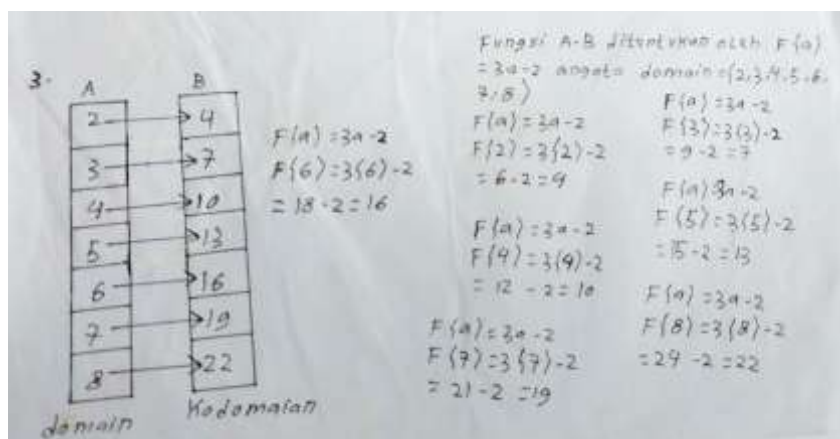 3.
A
B
2 → 4
3 → 7
4 → 10
5 → 13
6 → 16
7 → 19
8 → 22
domain
Kodomaian
F(a) = 3a - 2
F(6) = 3(6) - 2
= 18 - 2 = 16
Fungsi A-B ditentukan oleh F(a)
= 3a - 2 angota domain = {2,3,4,5,6,
7,8}
F(a) = 3a - 2
F(2) = 3(2) - 2
= 6 - 2 = 4
F(a) = 3a - 2
F(3) = 3(3) - 2
= 9 - 2 = 7
F(a) = 3a - 2
F(4) = 3(4) - 2
= 12 - 2 = 10
F(a) 3a - 2
F(5) = 3(5) - 2
= 15 - 2 = 13
F(a) = 3a - 2
F(7) = 3(7) - 2
= 21 - 2 = 19
F(a) = 3a - 2
F(8) = 3(8) - 2
= 24 - 2 = 22